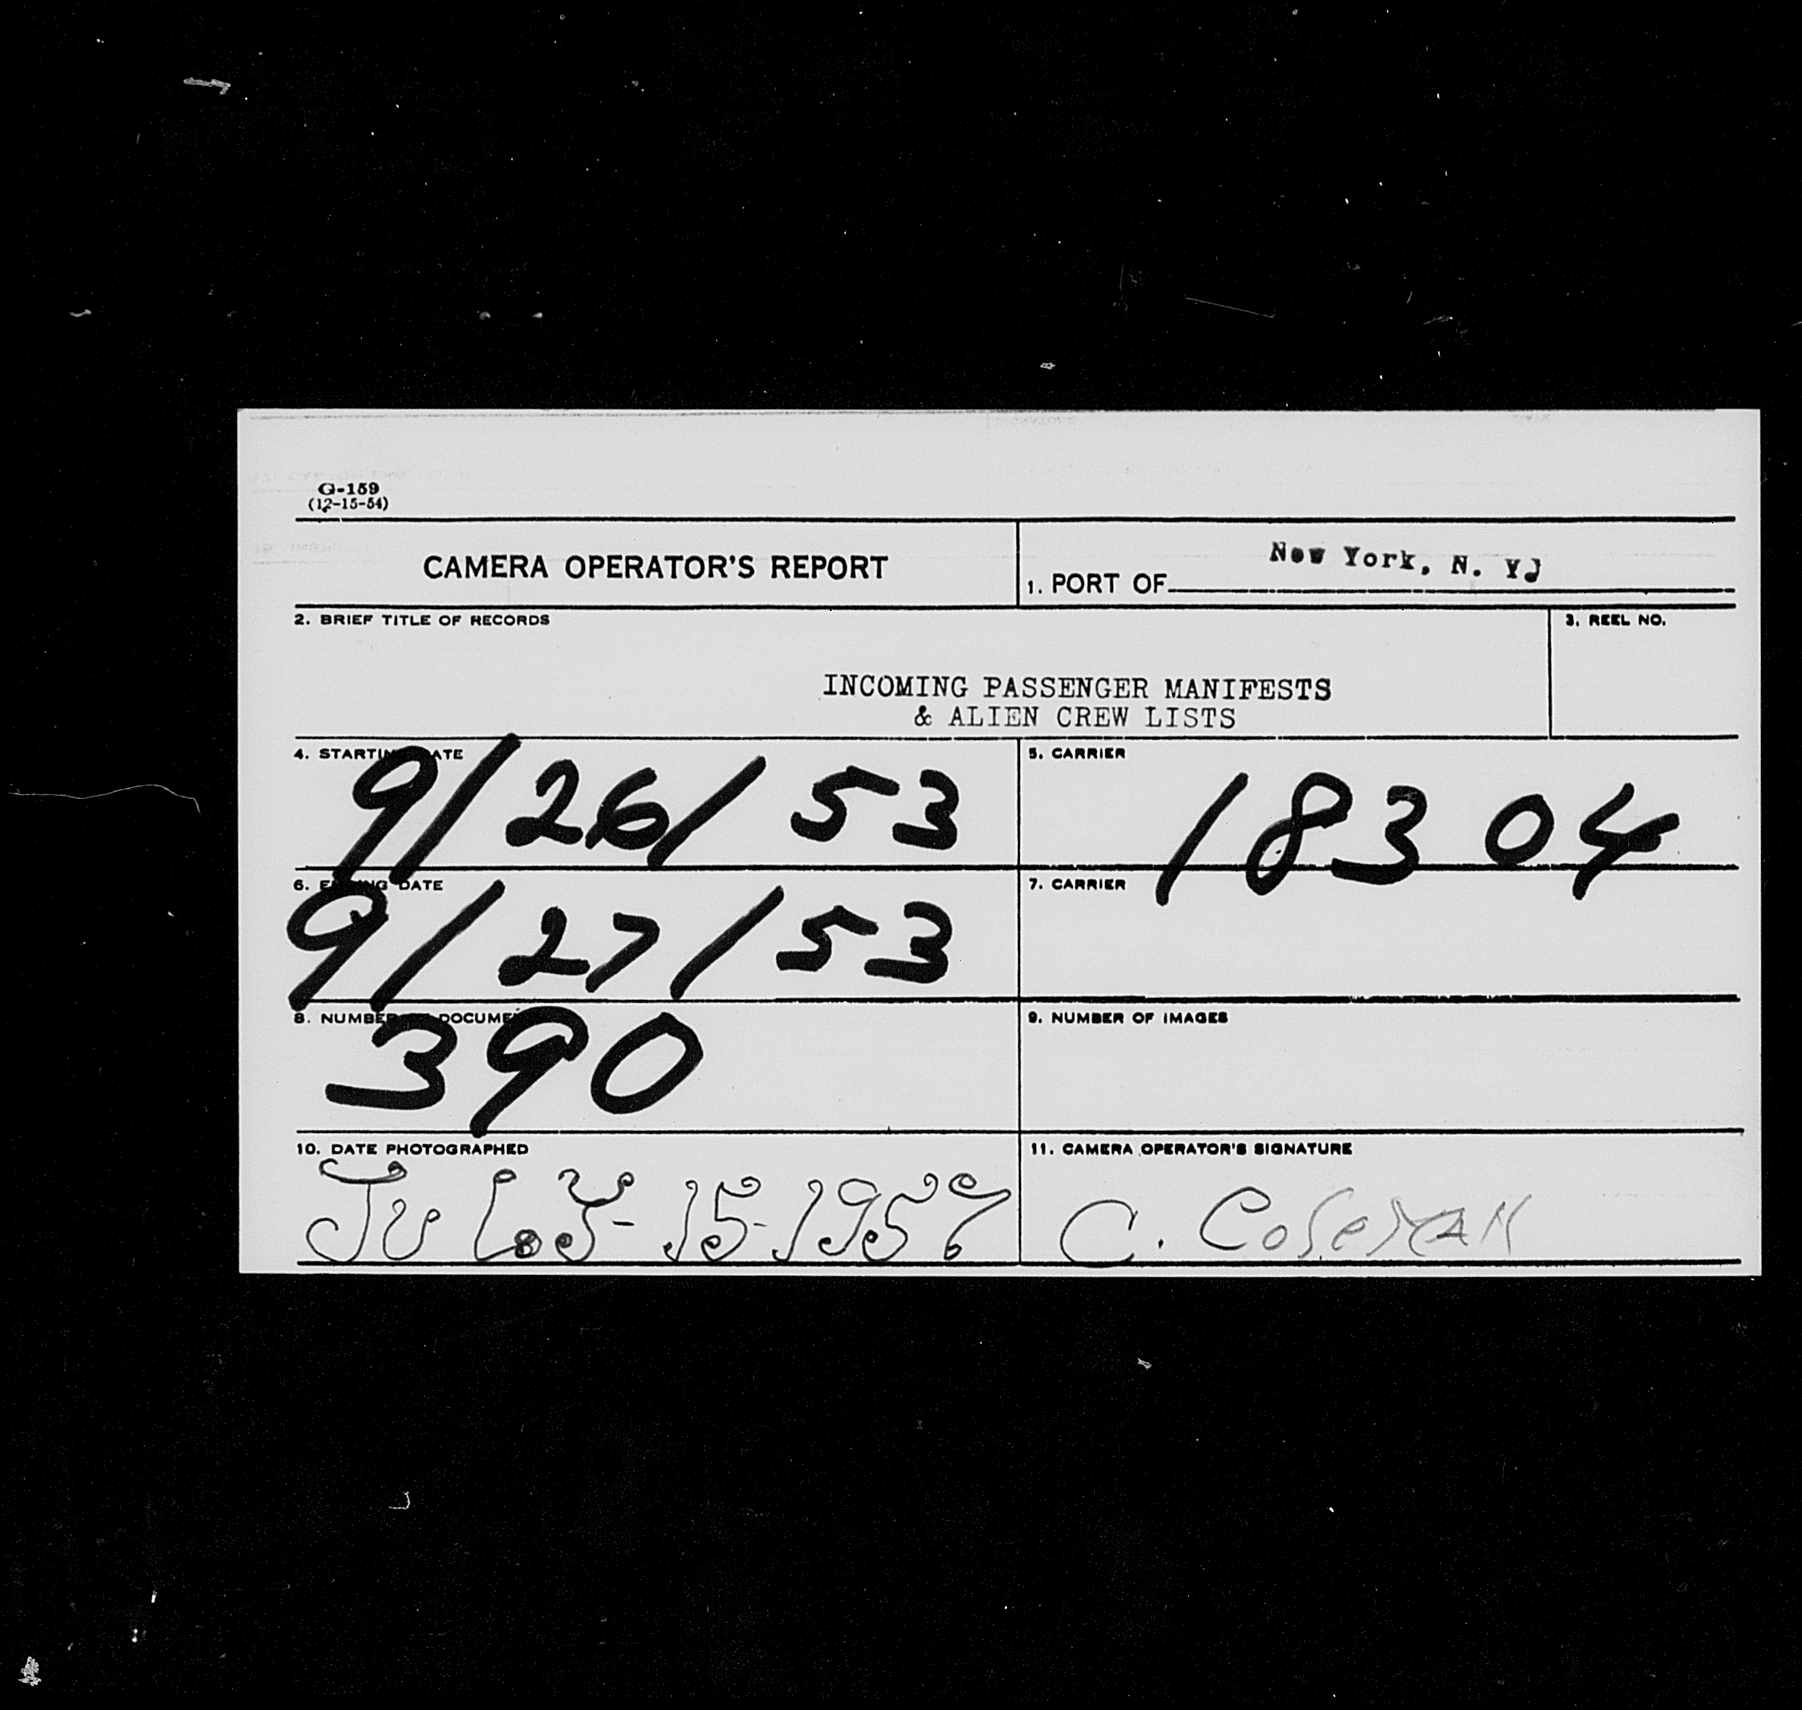 G-159
(12-15-54)
CAMERA OPERATOR'S REPORT
1. PORT OF New York, N. Y.
2. BRIEF TITLE OF RECORDS
3. REEL NO.
INCOMING PASSENGER MANIFESTS
& ALIEN CREW LISTS
4. STARTING DATE
9/26/53
5. CARRIER
18304
6. ENDING DATE
9/27/53
7. CARRIER
8. NUMBER OF DOCUMENTS
390
9. NUMBER OF IMAGES
10. DATE PHOTOGRAPHED
JULY-15-1957
11. CAMERA OPERATOR'S SIGNATURE
C.